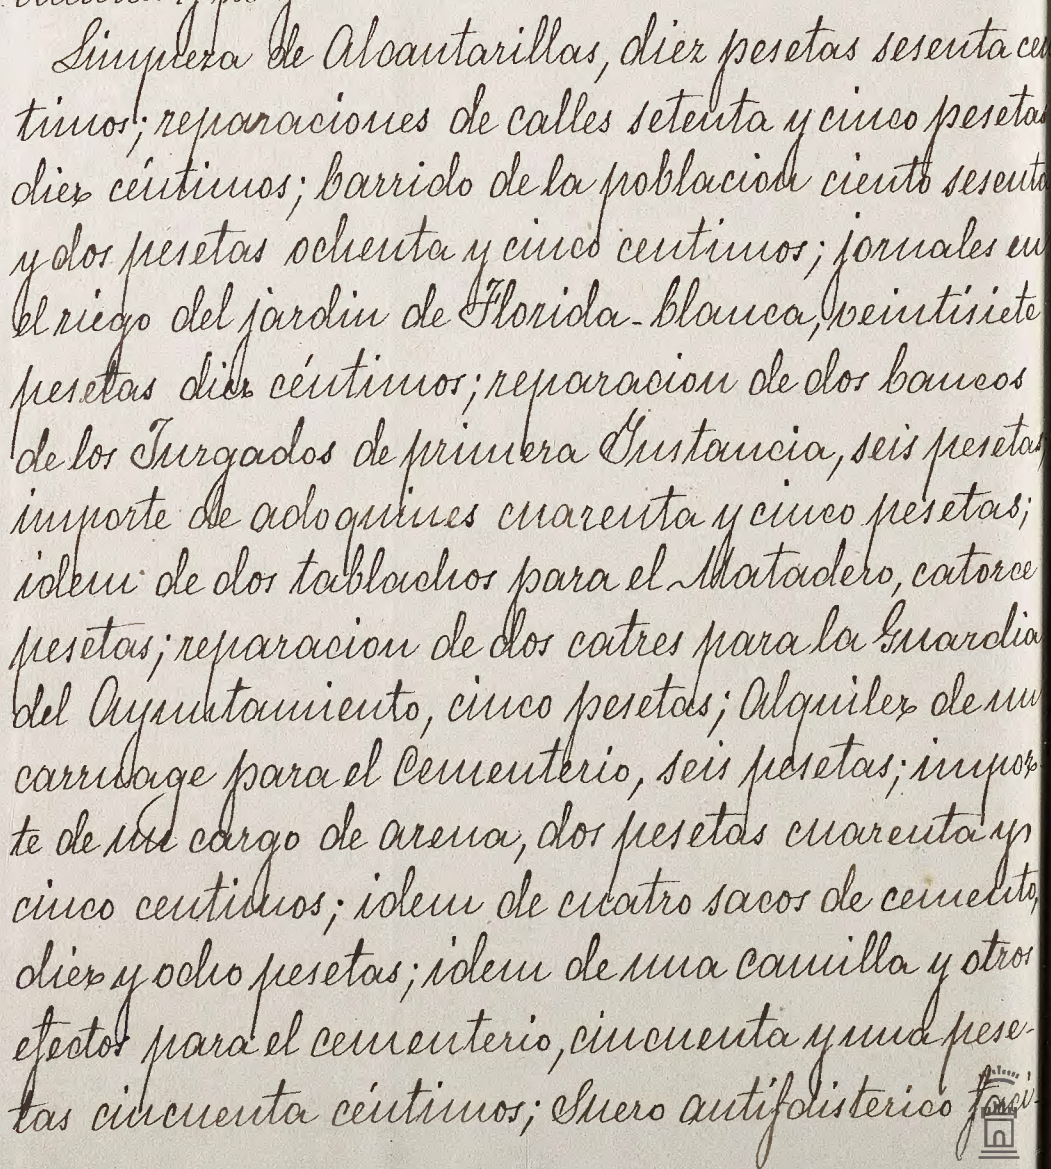 Limpieza de Alcantarillas, diez pesetas sesenta cen
timos; reparaciones de calles setenta y cinco pesetas
diez céntimos; barrido de la poblacion ciento sesenta
y dos pesetas ochenta y cinco centimos; jornales en
el riego del jardin de Florida-blanca, veintisiete
pesetas diez céntimos; reparacion de dos bancos
de los Jurgados de primera Instancia, seis pesetas,
importe de adoquines cuarenta y cinco pesetas;
idem de dos tablachos para el Matadero, catorce
pesetas; reparacion de dos catres para la Guardia
del Ayuntamiento, cinco pesetas; Alquilez de un
carruage para el Cementerio, seis pesetas; impor-
te de un cargo de arena, dos pesetas cuarenta y
cinco centimos; idem de cuatro sacos de cemento,
diez y ocho pesetas; idem de una camilla y otros
efectos para el cementerio, cincuenta y una pese-
tas cincuenta céntimos; Suero antifdisterico